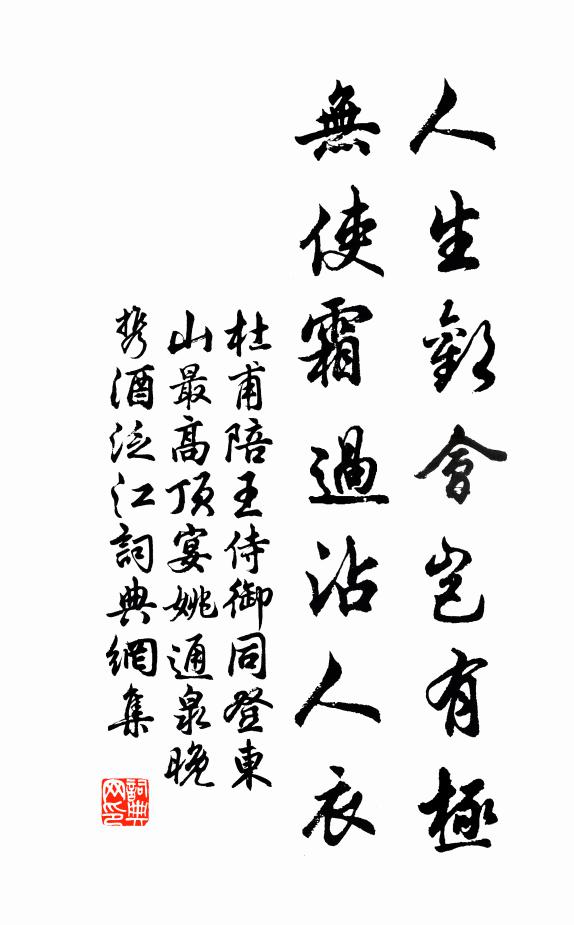 人生歡會豈有極
無使霜過沾人衣
杜甫陪王侍御同登東
山最高頂宴姚通泉晚
携酒泛江詞典網集
詞典网印